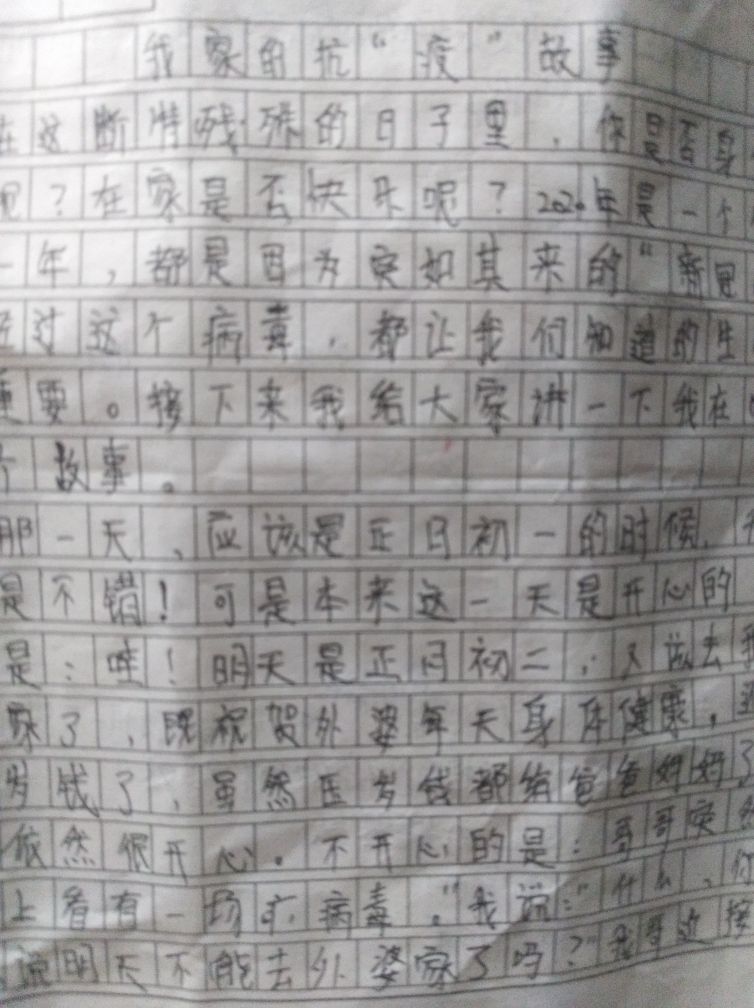 我家的抗“疫”故事
在这断特殊的日子里，你是否身
呢？在家是否快乐呢？2020年是一个
一年，都是因为突如其来的“新冠
过这个病毒，都让我们知道的生
重要。接下来我给大家讲一下我在
个故事。
那一天，应该是正月初一的时候，
是不错！可是本来这一天是开心的
是：哇！明天是正月初二，又该去我
家了，既祝贺外婆每天身体健康，
岁钱了，虽然压岁钱都给爸爸妈妈了
依然很开心。不开心的是：哥哥突然
上看有一场病毒。”我说：“什么，你
说明天不能去外婆家了吗？”我哥边